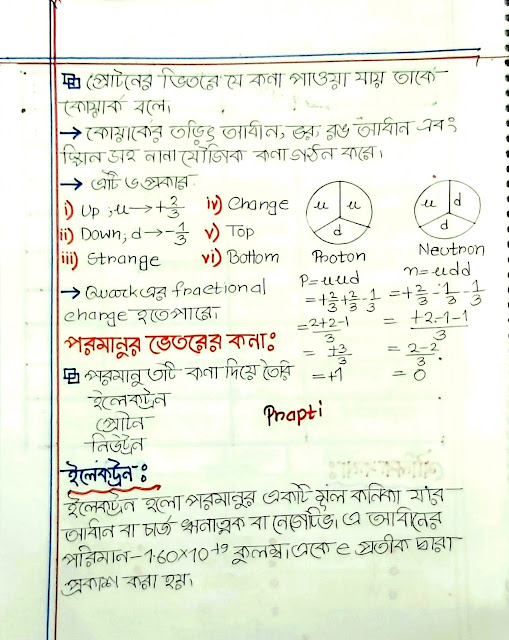 প্রোটনের ভিতরে যে কনা পাওয়া যায় তাকে
কোয়ার্ক বলে।
→ কোয়ার্কের তড়িৎ আধান, ভর, রঙ আধান এবং
স্পিন সহ নানা মৌলিক কনা গঠন করে।
→ এটি ৬ প্রকার
i) Up ; u → +2/3
ii) Down; d → -1/3
iii) Strange
iv) Change
v) Top
vi) Bottom
u u d
Proton
P = uud
= +2/3 +2/3 -1/3
= 2+2-1/3
= +3/3
= +1
u d d
Neutron
n = udd
= +2/3 -1/3 -1/3
= +2-1-1/3
= 2-2/3
= 0
→ Quark এর fractional
change হতে পারে।
পরমানুর ভেতরের কনাঃ
পরমানু ৩টি কনা দিয়ে তৈরি
ইলেকট্রন
প্রোটন
নিউট্রন
Prapti
ইলেকট্রন ঃ
ইলেকট্রন হলো পরমানুর একটি মূল কনিকা যার
আধান বা চার্জ ঋনাত্বক বা নেগেটিভ। এ আধানের
পরিমান -1.60×10⁻¹⁹ কুলম্ব। একে e প্রতীক দ্বারা
প্রকাশ করা হয়।